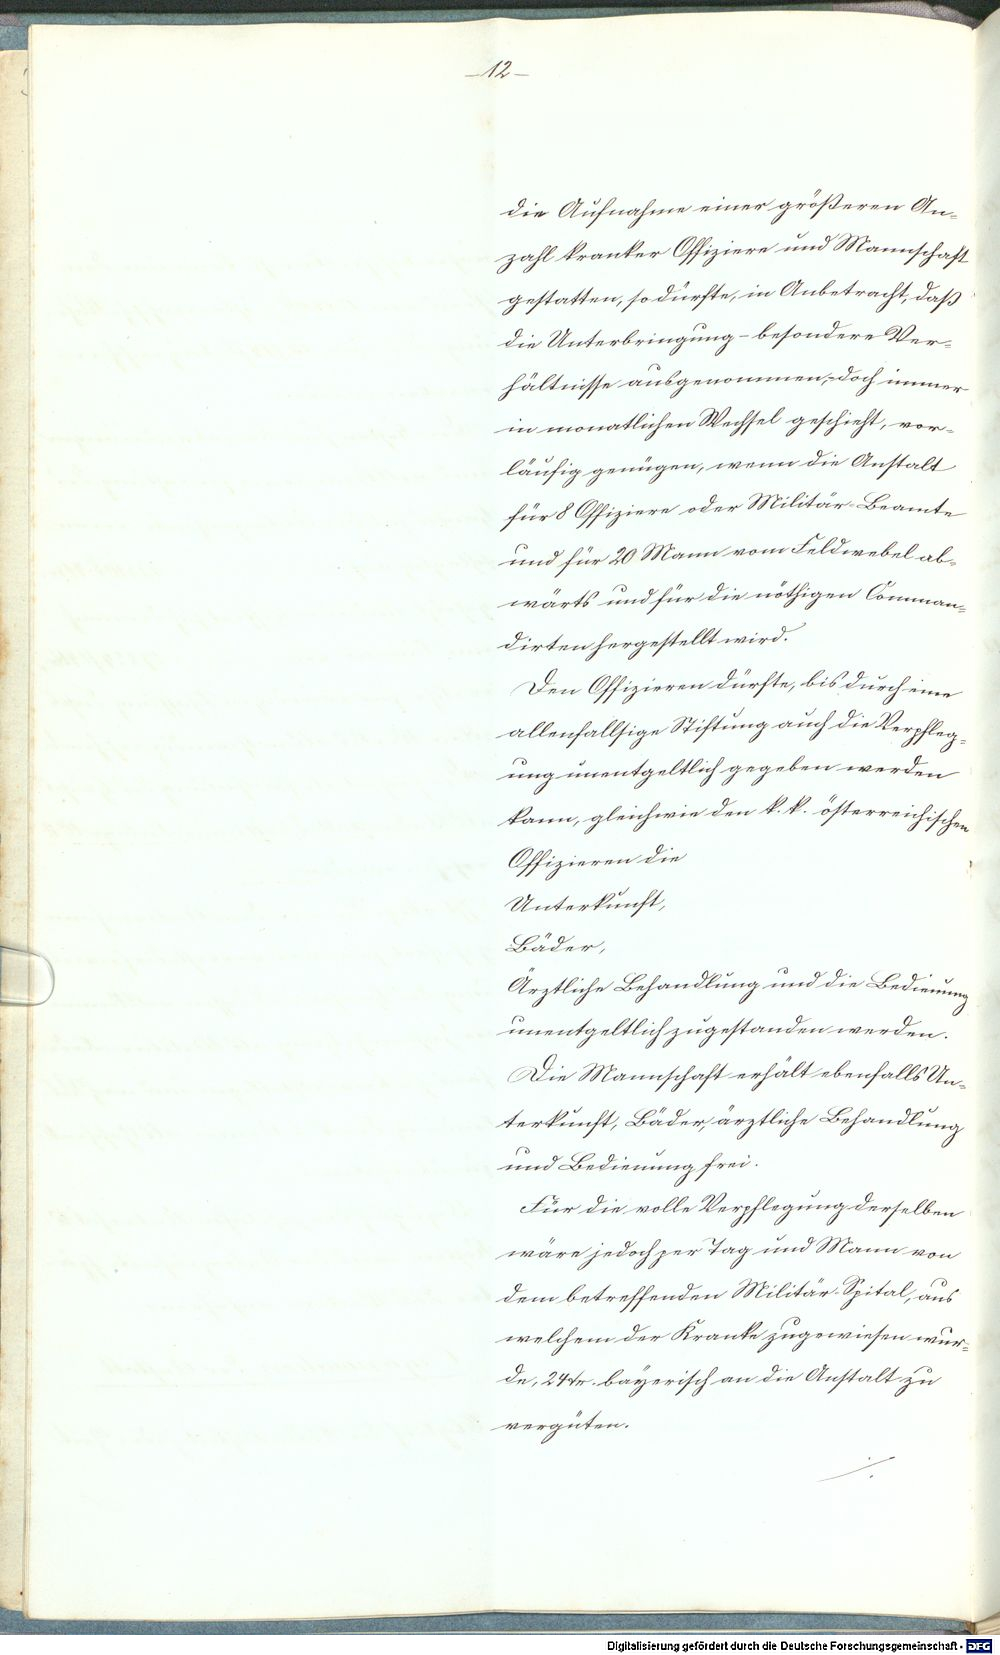 -12-
die Aufnahme einer größeren An-
zahl kranker Offiziere und Mannschaft
gestatten, so dürfte, in Anbetracht, daß
die Unterbringung - besondere Ver-
hältnisse ausgenommen,- doch immer
in monatlichen Wechsel geschieht, vor-
läufig genügen, wenn die Anstalt
für 8 Offiziere oder Militär-Beamte
und für 20 Mann vom Feldwebel ab-
wärts und für die nöthigen Comman-
dirten hergestellt wird.
Den Offizieren dürfte, bis durch eine
allenfallsige Stiftung auch die Verpfleg-
ung unentgeltlich gegeben werden
kann, gleichwie den k. k. österreichischen
Offizieren die
Unterkunft,
Bäder,
Ärztliche Behandlung und die Bedienung
unentgeltlich zugestanden werden.
Die Mannschaft erhält ebenfalls Un-
terkunft, Bäder, ärztliche Behandlung
und Bedienung frei.
Für die volle Verpflegung derselben
wäre jedoch per Tag und Mann von
dem betreffenden Militär-Spital, aus
welchem der Kranke zugewiesen wur-
de, 24 kr. bayerisch an die Anstalt zu
vergüten.
./.
Digitalisierung gefördert durch die Deutsche Forschungsgemeinschaft - DFG